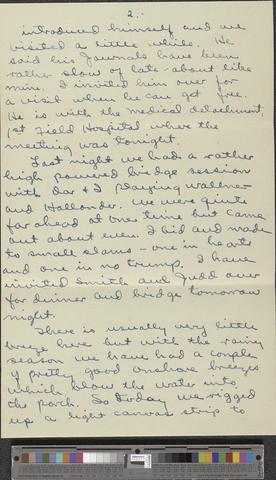 2.
introduced himself and we
visited a little while. He
said his Journals have been
rather slow of late - about like
mine. I invited him over for
a visit when he can get free.
He is with the medical detachment,
1st Field Hospital where the
meeting was tonight.
Last night we had a rather
high powered bridge session
with Dar & I playing Wallner
and Hollander. We were quite
far ahead at one time but came
out about even. I bid and made
to small slams - one in hearts
and one in no trump. I have
invited Smith and Judd over
for dinner and bridge tomorrow
night.
There is usually very little
breeze here but with the rainy
season we have had a couple
of pretty good onshore breezes
which blow the water into
the porch. So today we rigged
up a light canvas strip to